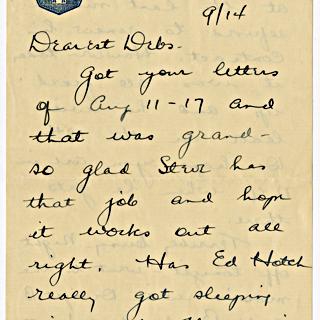 9/14
Dearest Debs-
Got your letters
of Aug 11-17 and
that was grand-
so glad Steve has
that job and hope
it works out all
right. Has Ed Hotch
really got sleeping